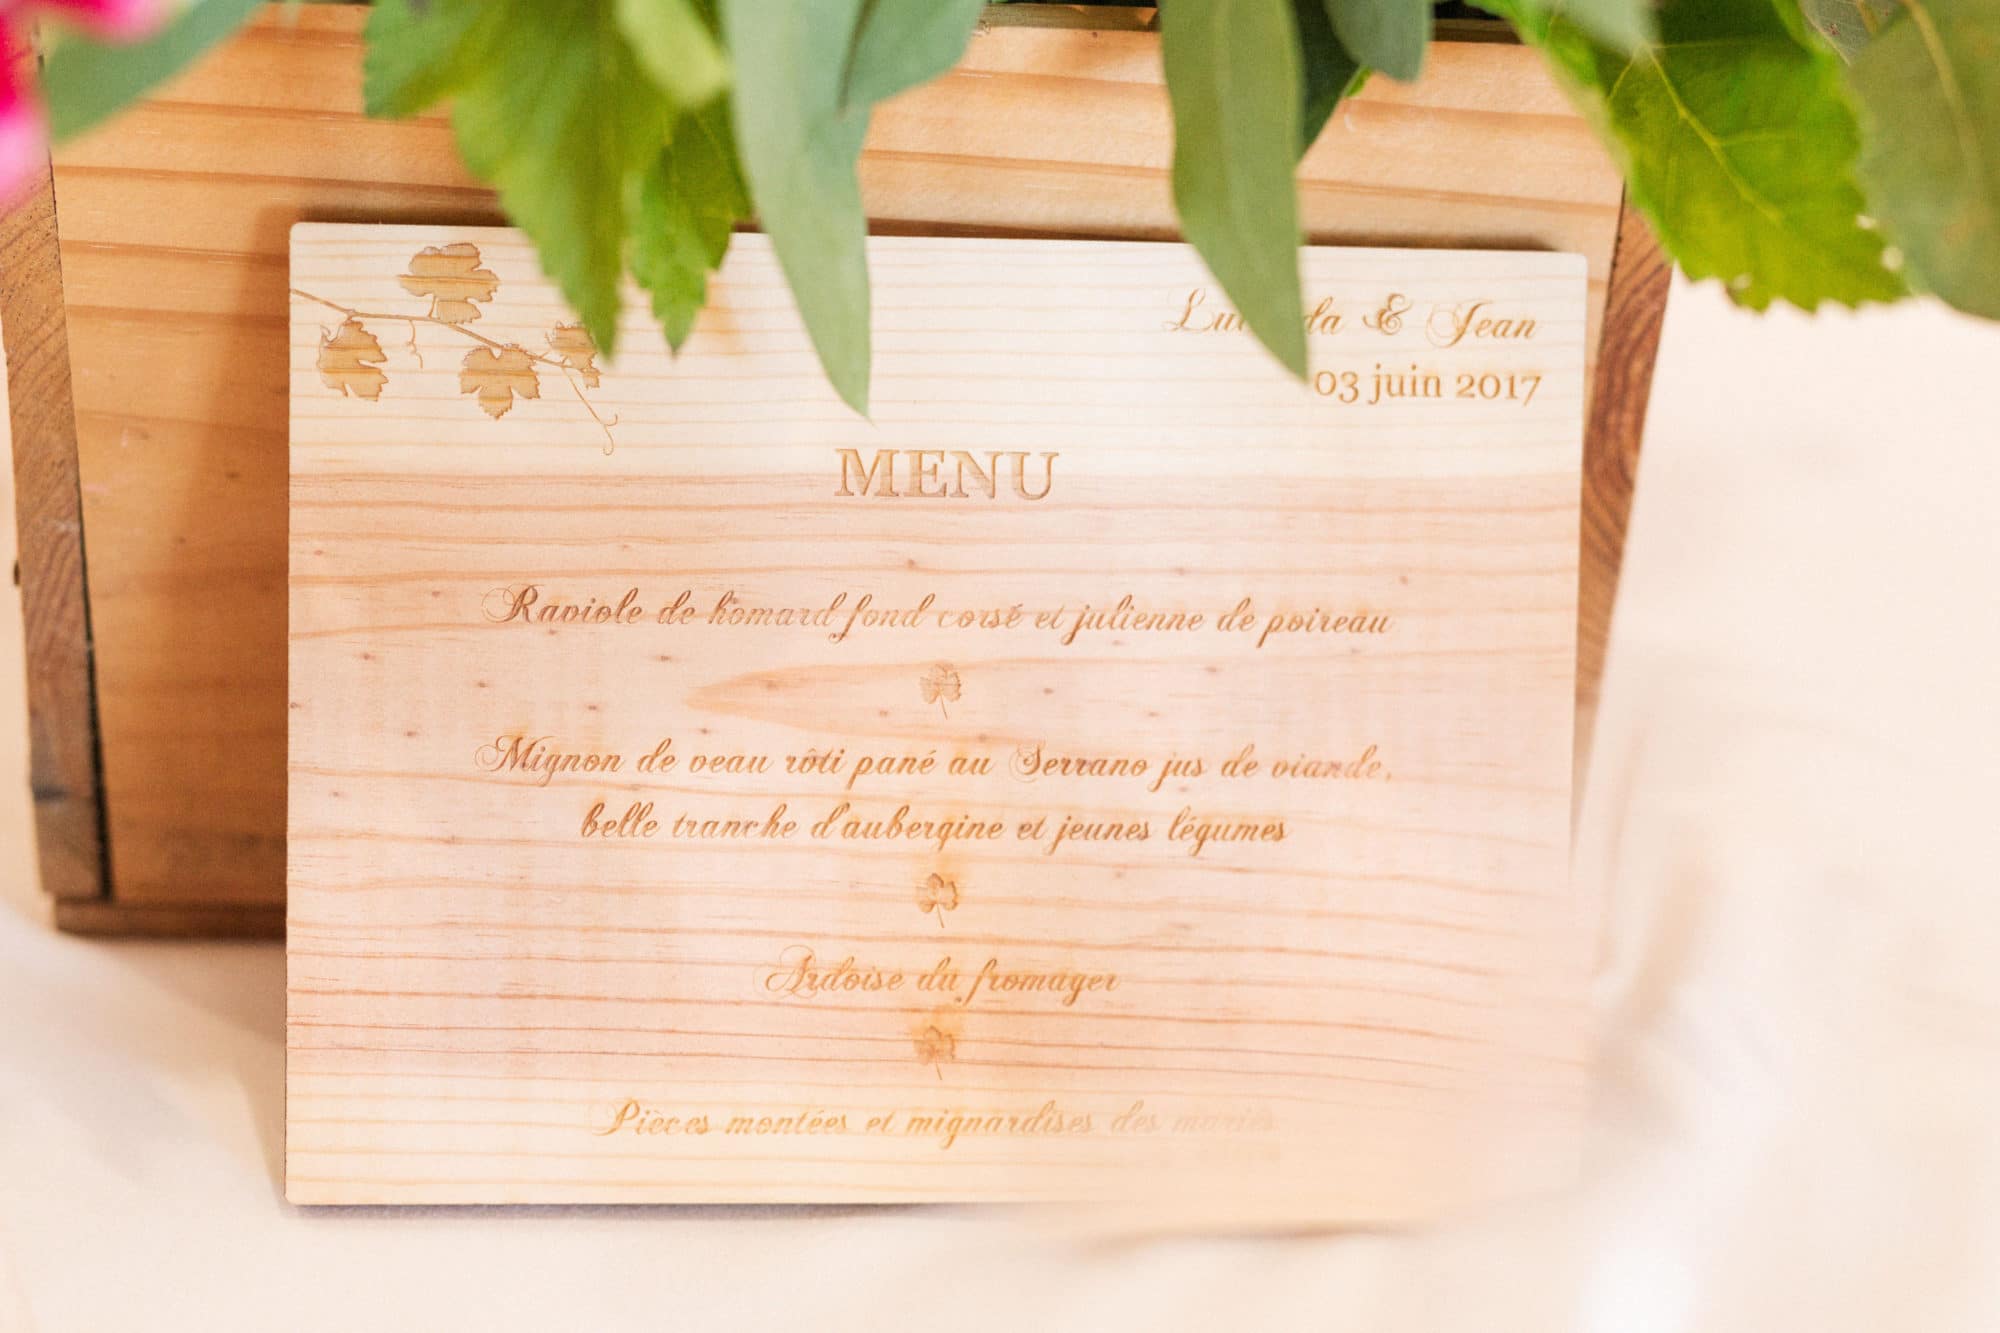 & Jean
03 juin 2017
MENU
Raviole de homard fond corsé et julienne de poireau
Mignon de veau rôti pané au Serrano jus de viande,
belle tranche d'aubergine et jeunes légumes
Ardoise du fromager
Pièces montées et mignardises des mariés